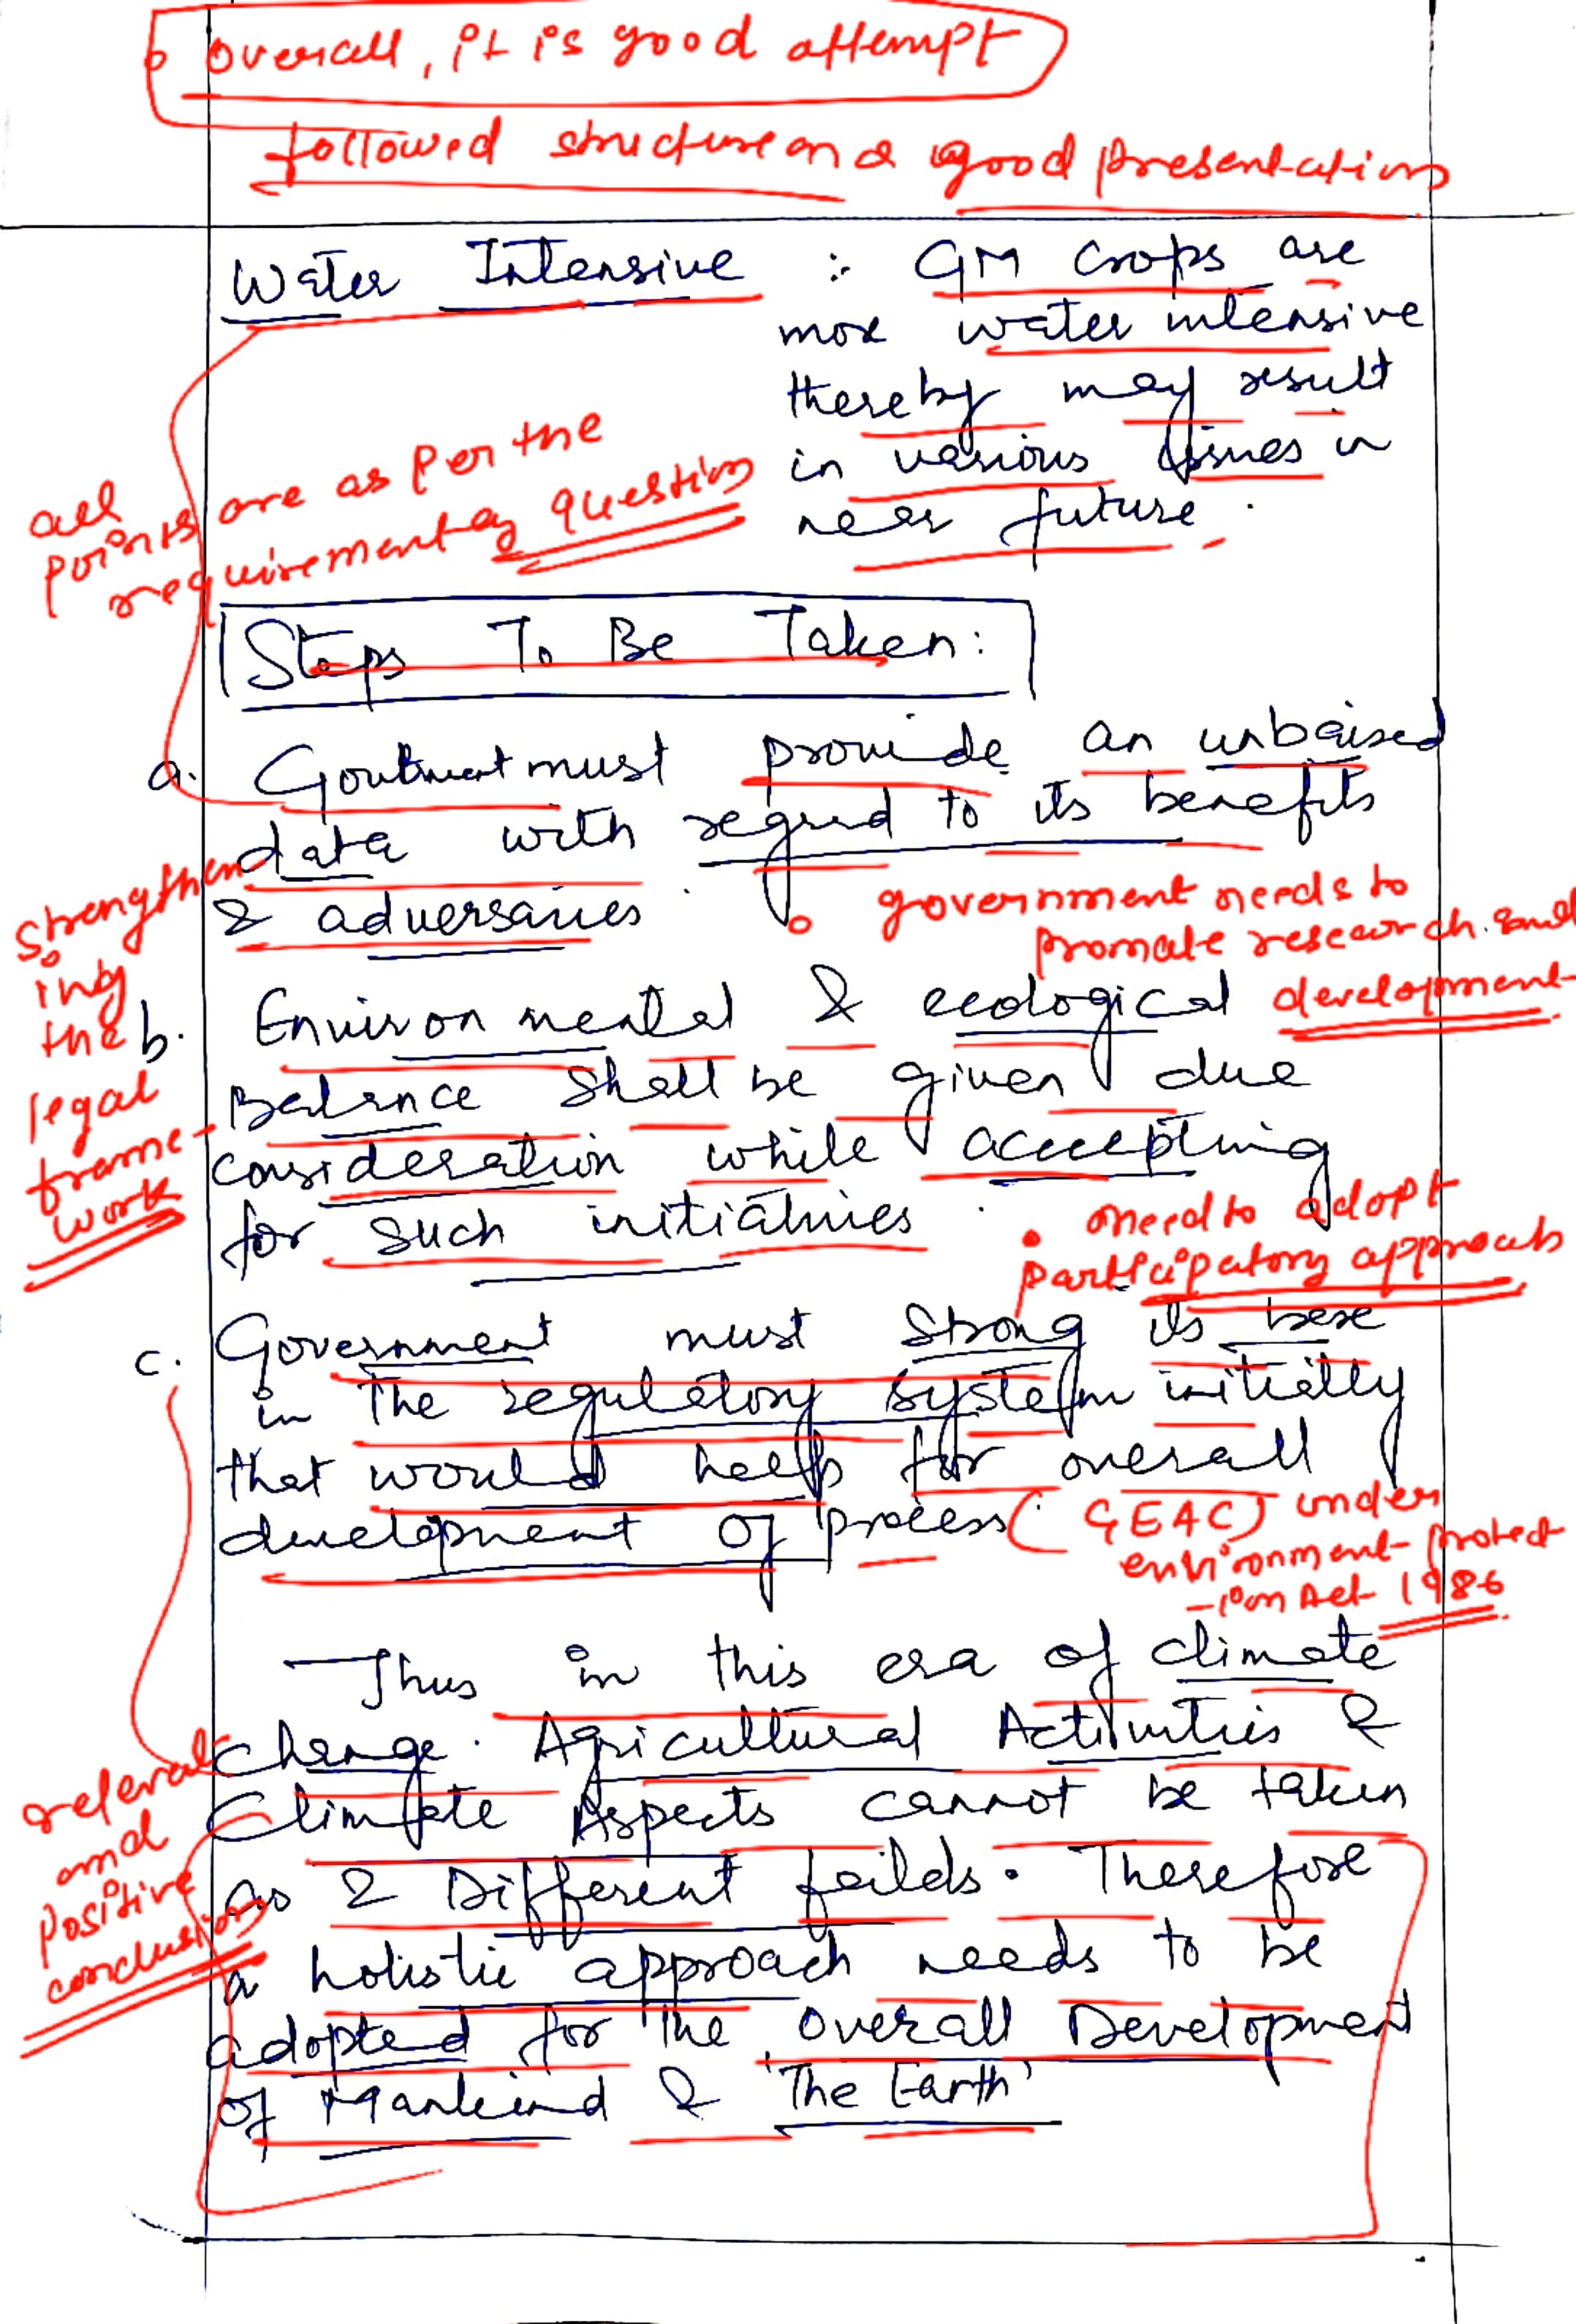 overall, it is good attempt
followed structure and good presentation
Water Intensive : GM Crops are
more water intensive
thereby may result
in various issues in
near future.
all points are as per the
requirement of question
Steps To Be Taken:
a. Goverment must provide an unbaised
data with regard to its benefits
& adversaries.
• government needs to
promote research and
development
strengthen
ing
the
legal
frame-
work
b. Environmental & ecological
Balance shall be given due
consideration while accepting
for such initiatives.
• need to adopt
participatory approach
c. Government must strong its base
in the regulatory system initially
that would help for overall
development of process.
(GEAC) under
environment protect
-ion Act 1986
Thus in this era of climate
change. Agricultural Activities &
Climate Aspects cannot be taken
as 2 Different feilds. Therefore
a holistic approach needs to be
adopted for the overall Development
of Mankind & 'The Earth'
relevant
and
positive
conclusion